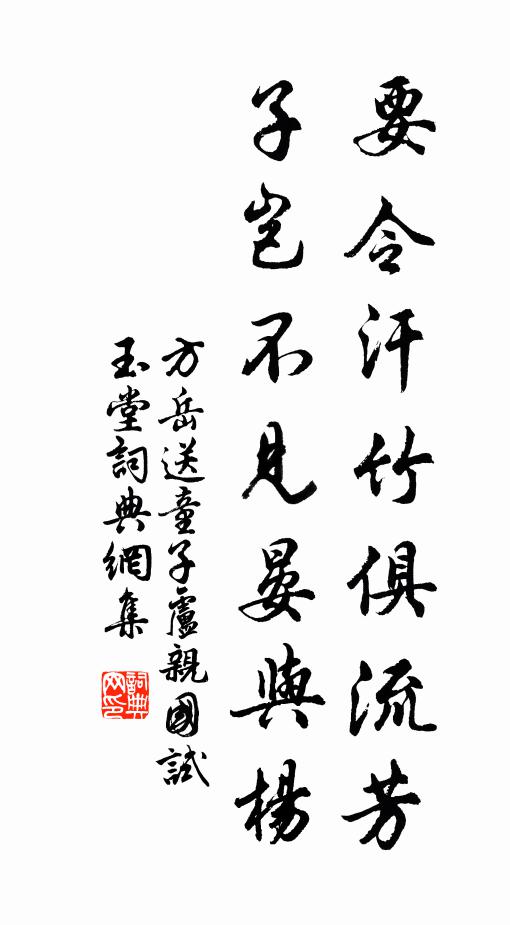 要令汗竹俱流芳
子豈不見晏與楊
方岳送童子盧親國試
玉堂詞典網集
詞典网印